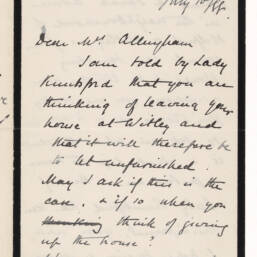 July 10/88.
Dear Mrs. Allingham
I am told by Lady
Knutsford that you are
thinking of leaving your
house at Witley and
that it will therefore be
to let unfurnished.
May I ask if this is the
case, & if so when you
thinking think of giving
up the house?